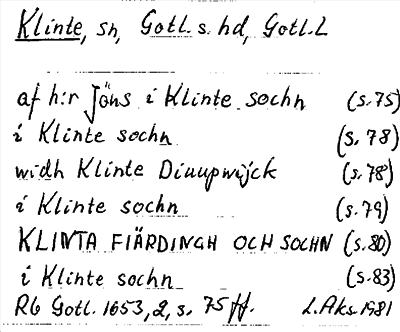 Klinte, sn, Gotl. s. hd, Gotl. L
af h:r Jöns i Klinte sochn (s. 75)
i Klinte sochn (s. 78)
widh Klinte Diuupwijck (s. 78)
i Klinte sochn (s. 79)
KLINTA FIÄRDINGH OCH SOCHN (s. 80)
i Klinte sochn (s. 83)
RG Gotl. 1653, 2, s. 75 ff. L. Aks. 1981